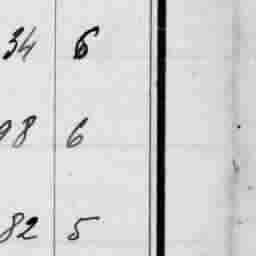 34 6
98 6
82 5